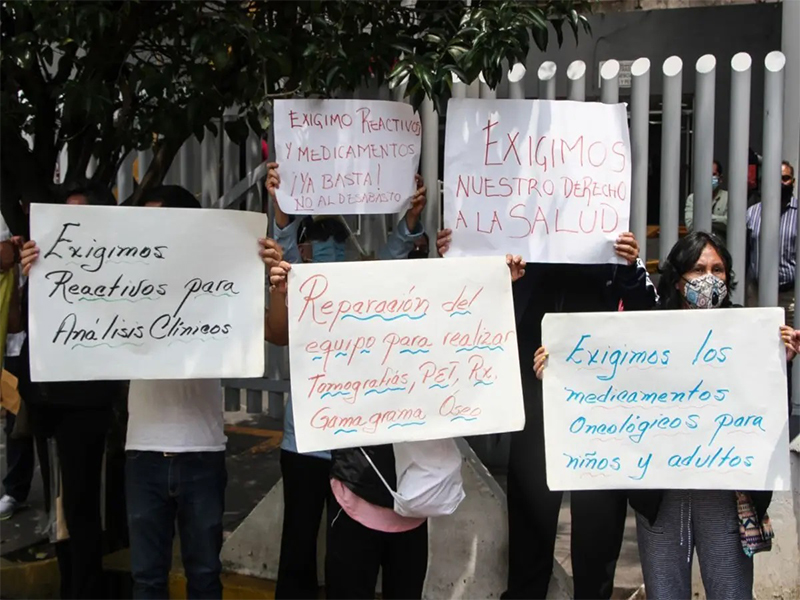 EXIGIMO REACTIVOS
Y MEDICAMENTOS
¡YA BASTA!
NO AL DESABASTO
EXIGIMOS
NUESTRO DERECHO
A LA SALUD
Exigimos
Reactivos para
Análisis Clínicos
Reparación del
equipo para realizar
Tomografías, PET, Rx,
Gamagrama Óseo
Exigimos los
medicamentos
Oncológicos para
niños y adultos